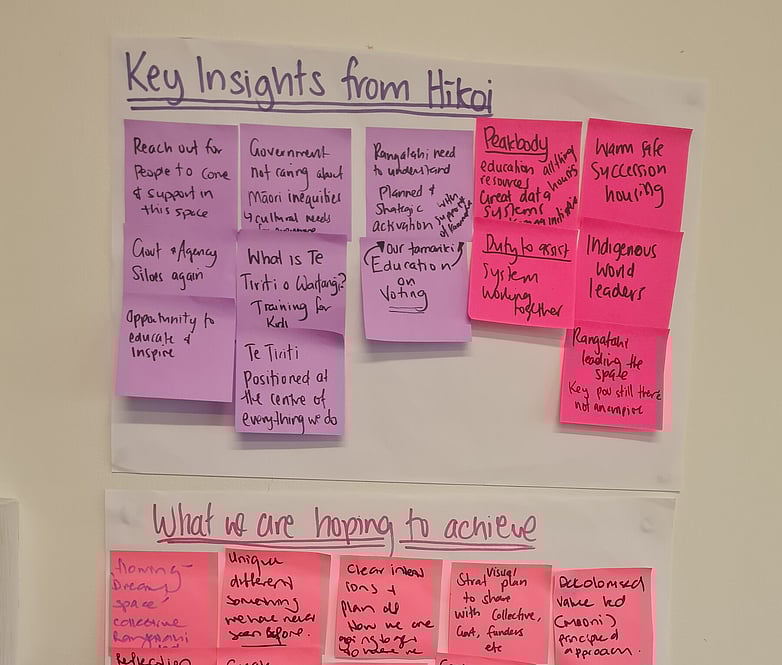 Key Insights from Hīkoi
Reach out for
People to come
& support in
this space
Government
not caring about
Māori inequities
4 cultural needs
Rangatahi need
to understand
Planned &
Strategic
activation
with
support
of
Peakbody
education all thing
resources housing
Great data
Systems
Warm safe
succession
housing
Govt & Agency
Siloes again
What is Te
Tiriti o Waitangi?
Training for
Kids
Our tamariki
Education
on
Voting
Duty to assist
System
working
together
Indigenous
world
leaders
Opportunity to
educate &
Inspire
Te Tiriti
Positioned at
the centre of
everything we do
Rangatahi
leading the
space
Key pou still there
not an umpire
What we are hoping to achieve
flowing
Dreams
space
collective
Rangatahi
led
Unique
different
something
we have never
seen before.
Clear intent
ions &
Plan of
How we are
going to
Visual
Strat plan
to share
with Collective,
Govt, funders
etc
Decolonised
Value led
(Māori)
principled
approach.
Reflection